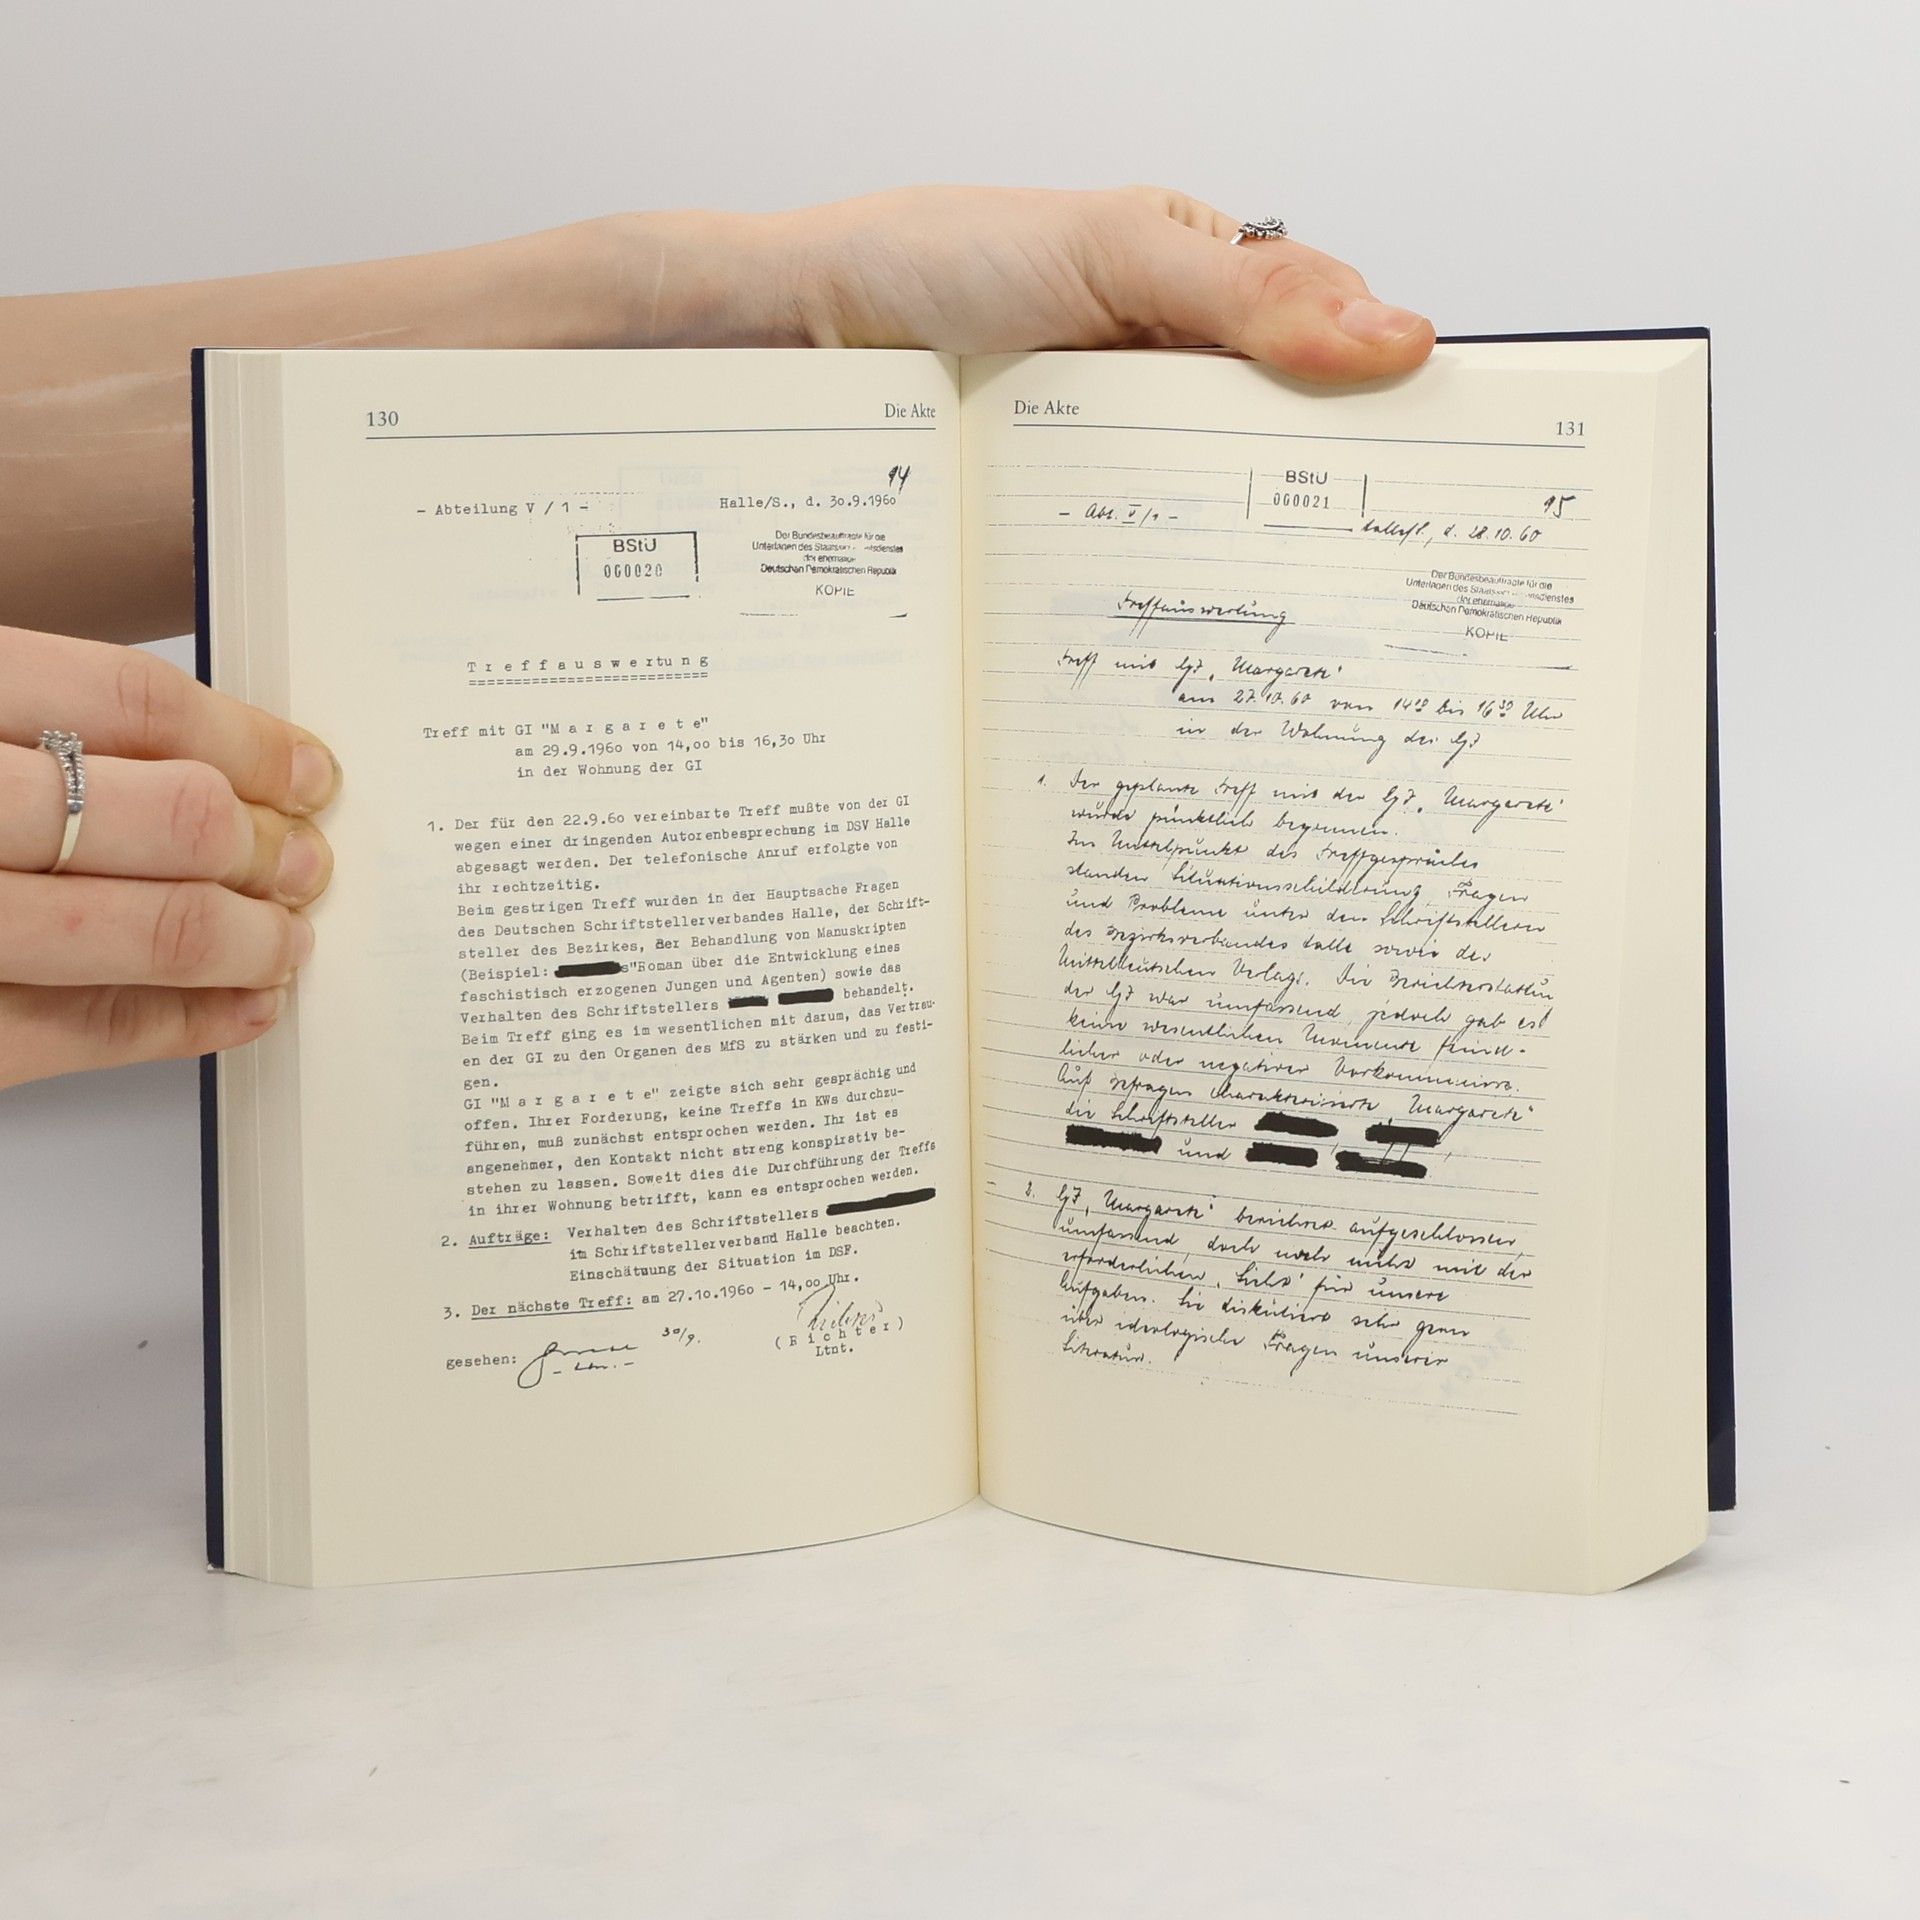 130 Die Akte
14
- Abteilung V / 1 - Halle/S., d. 30.9.1960
BStU
000020
Der Bundesbeauftragte für die
Unterlagen des Staats
der ehemaligen
Deutschen Demokratischen Republik
KOPIE
T r e f f a u s w e r t u n g
Treff mit GI "M a r g a r e t e"
am 29.9.1960 von 14,00 bis 16,30 Uhr
in der Wohnung der GI
1. Der für den 22.9.60 vereinbarte Treff mußte von der GI
wegen einer dringenden Autorenbesprechung im DSV Halle
abgesagt werden. Der telefonische Anruf erfolgte von
ihr rechtzeitig.
Beim gestrigen Treff wurden in der Hauptsache Fragen
des Deutschen Schriftstellerverbandes Halle, der Schrift-
steller des Bezirkes, der Behandlung von Manuskripten
(Beispiel: s"Roman über die Entwicklung eines
faschistisch erzogenen Jungen und Agenten) sowie das
Verhalten des Schriftstellers behandelt.
Beim Treff ging es im wesentlichen mit darum, das Vertrau-
en der GI zu den Organen des MfS zu stärken und zu festi-
gen.
GI "M a r g a r e t e" zeigte sich sehr gesprächig und
offen. Ihrer Forderung, keine Treffs in KWs durchzu-
führen, muß zunächst entsprochen werden. Ihr ist es
angenehmer, den Kontakt nicht streng konspirativ be-
stehen zu lassen. Soweit dies die Durchführung der Treffs
in ihrer Wohnung betrifft, kann es entsprochen werden.
2. Aufträge: Verhalten des Schriftstellers
im Schriftstellerverband Halle beachten.
Einschätzung der Situation im DSF.
3. Der nächste Treff: am 27.10.1960 - 14,00 Uhr.
gesehen: 30/9. ( R i c h t e r )
Ltnt.
Die Akte 131
BStU
000021
15
- Abt. V/1 - Halle/S., d. 28.10.60
Der Bundesbeauftragte für die
Unterlagen des Staats
der ehemaligen
Deutschen Demokratischen Republik
KOPIE
Treffauswertung
Treff mit GI „Margarete"
am 27.10.60 von 14 00 bis 16 30 Uhr
in der Wohnung der GI
1. Der geplante Treff mit der GI „Margarete"
wurde pünktlich begonnen.
Im Mittelpunkt des Treffgespräches
standen Situationsschilderung, Fragen
und Probleme unter den Schriftstellern
des Bezirksverbandes Halle sowie des
Mitteldeutschen Verlags. Die Berichterstattung
der GI war umfassend, jedoch gab es
keine wesentlichen Momente feind-
licher oder negativer Vorkommnisse.
Auf Befragen charakterisierte „Margarete"
die Schriftsteller
und
2. GI „Margarete" berichtet aufgeschlossen,
umfassend, doch noch nicht mit der
erforderlichen „Liebe" für unsere
Aufgaben. Sie diskutiert sehr gern
über ideologische Fragen unserer
Literatur.